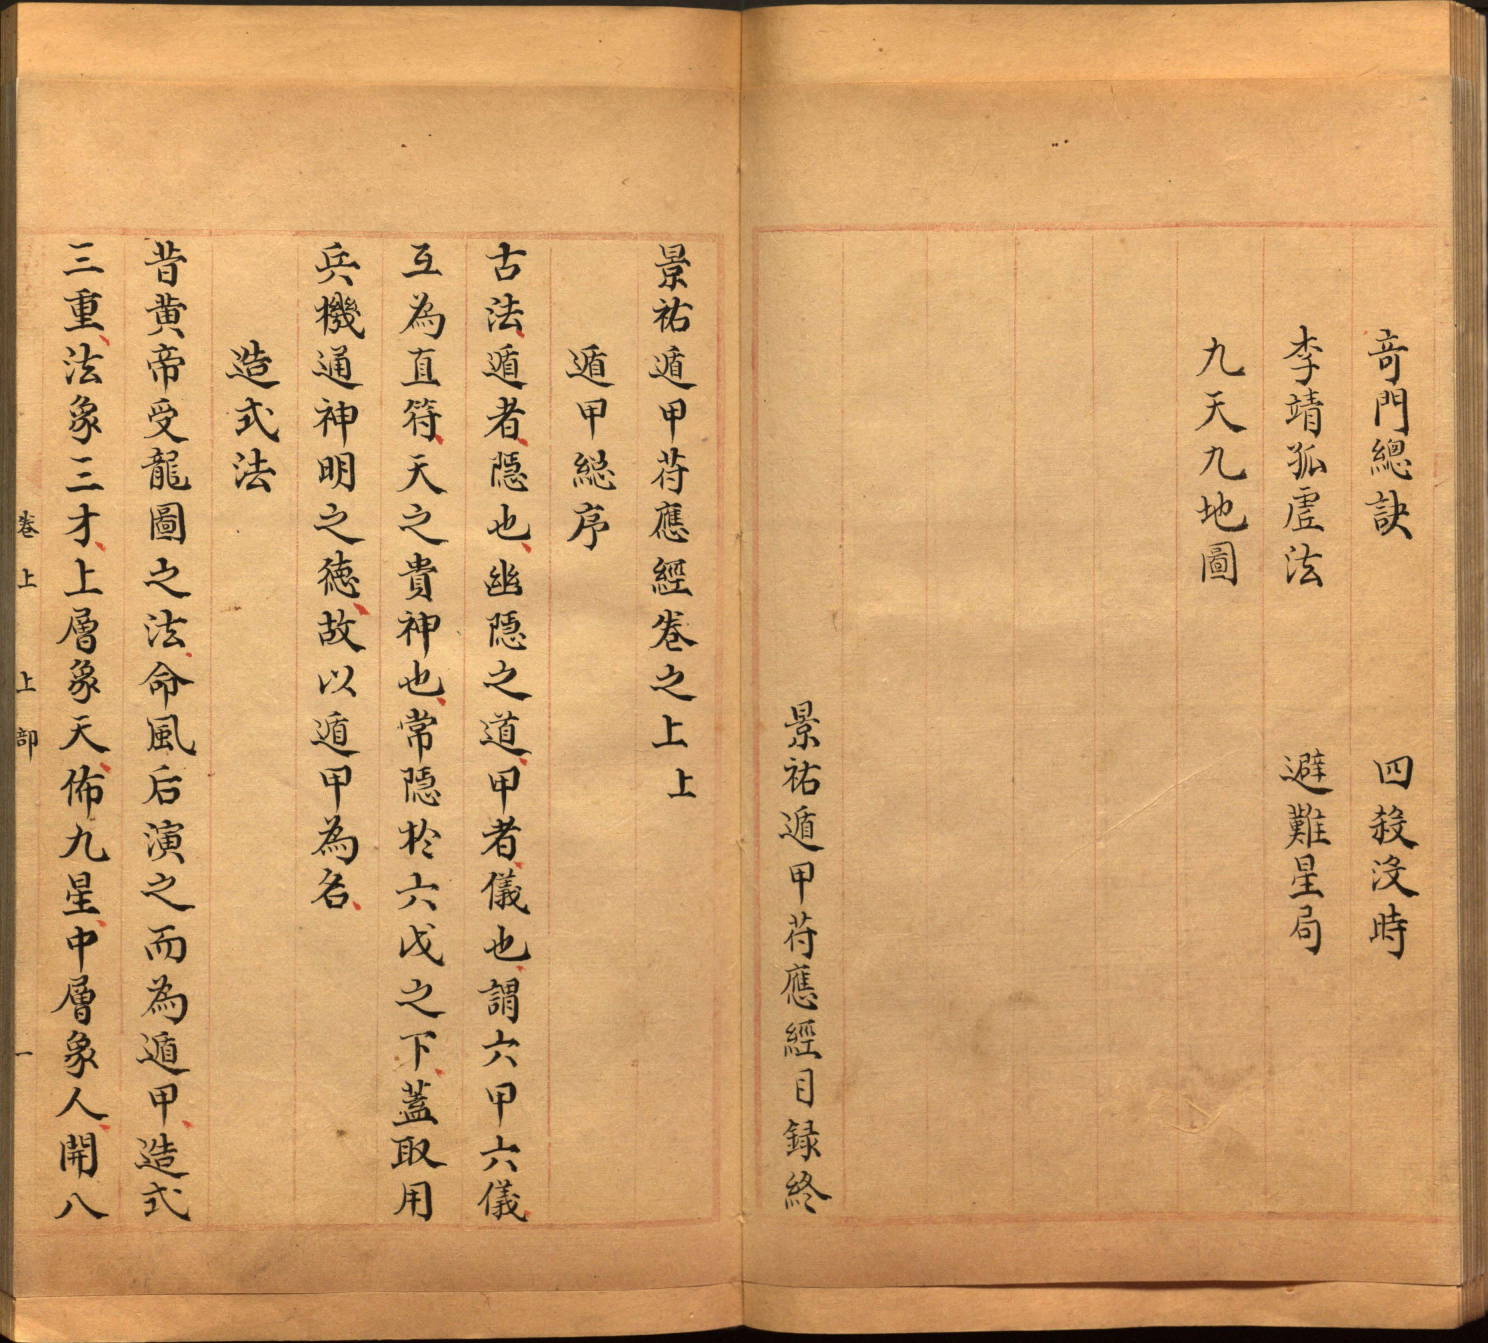 奇門總訣 四殺没時
李靖孤虛法 避難星局
九天九地圖
景祐遁甲苻應經目録終
景祐遁甲苻應經卷之上上
遁甲総序
古法遁者隠也幽隠之道甲者儀也謂六甲六儀
互為直符天之貴神也常隠於六戊之下蓋取用
兵機通神明之徳故以遁甲為名
造式法
昔黄帝受龍圖之法命風后演之而為遁甲造式
三重法象三才上層象天佈九星中層象人開八
卷上 上部 一